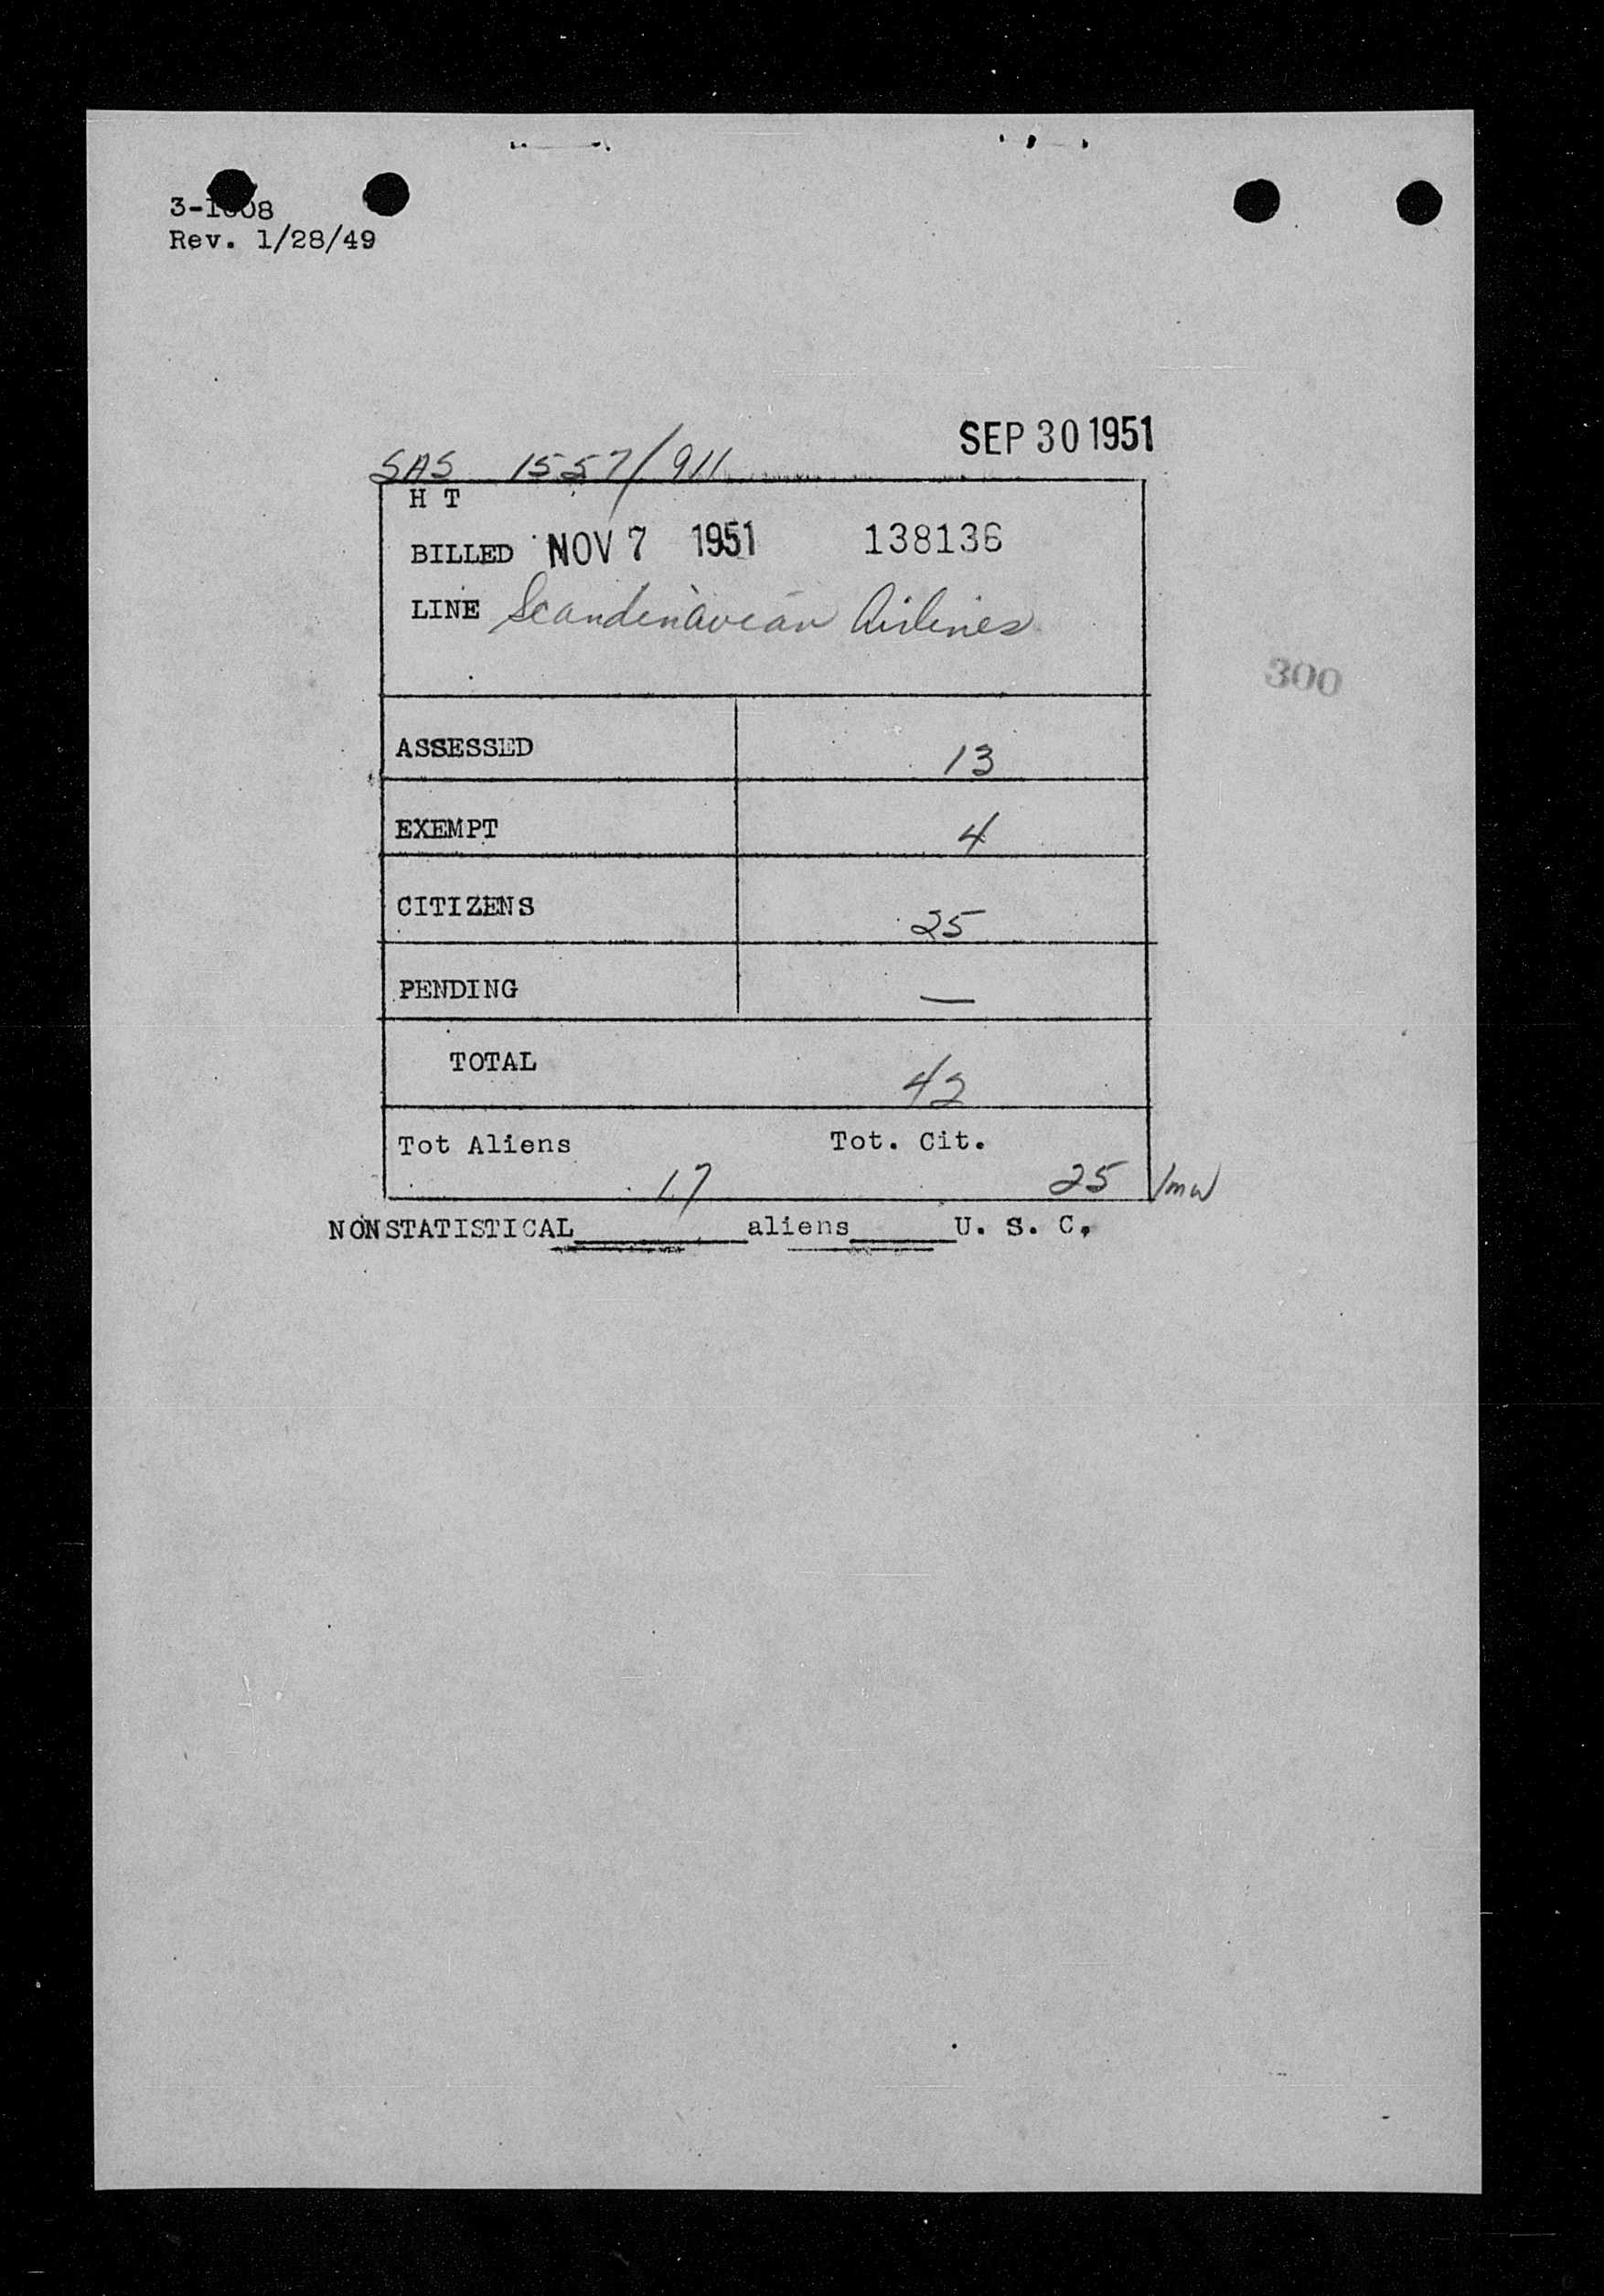 Rev. 1/28/49
SEP 30 1951
SAS 1557/911
H T
BILLED NOV 7 1951 138136
LINE Scandinavian Airlines
300
ASSESSED 13
EXEMPT 4
CITIZENS 25
PENDING —
TOTAL 42
Tot Aliens Tot. Cit.
17 25 /mw
NONSTATISTICAL______aliens____U. S. C.